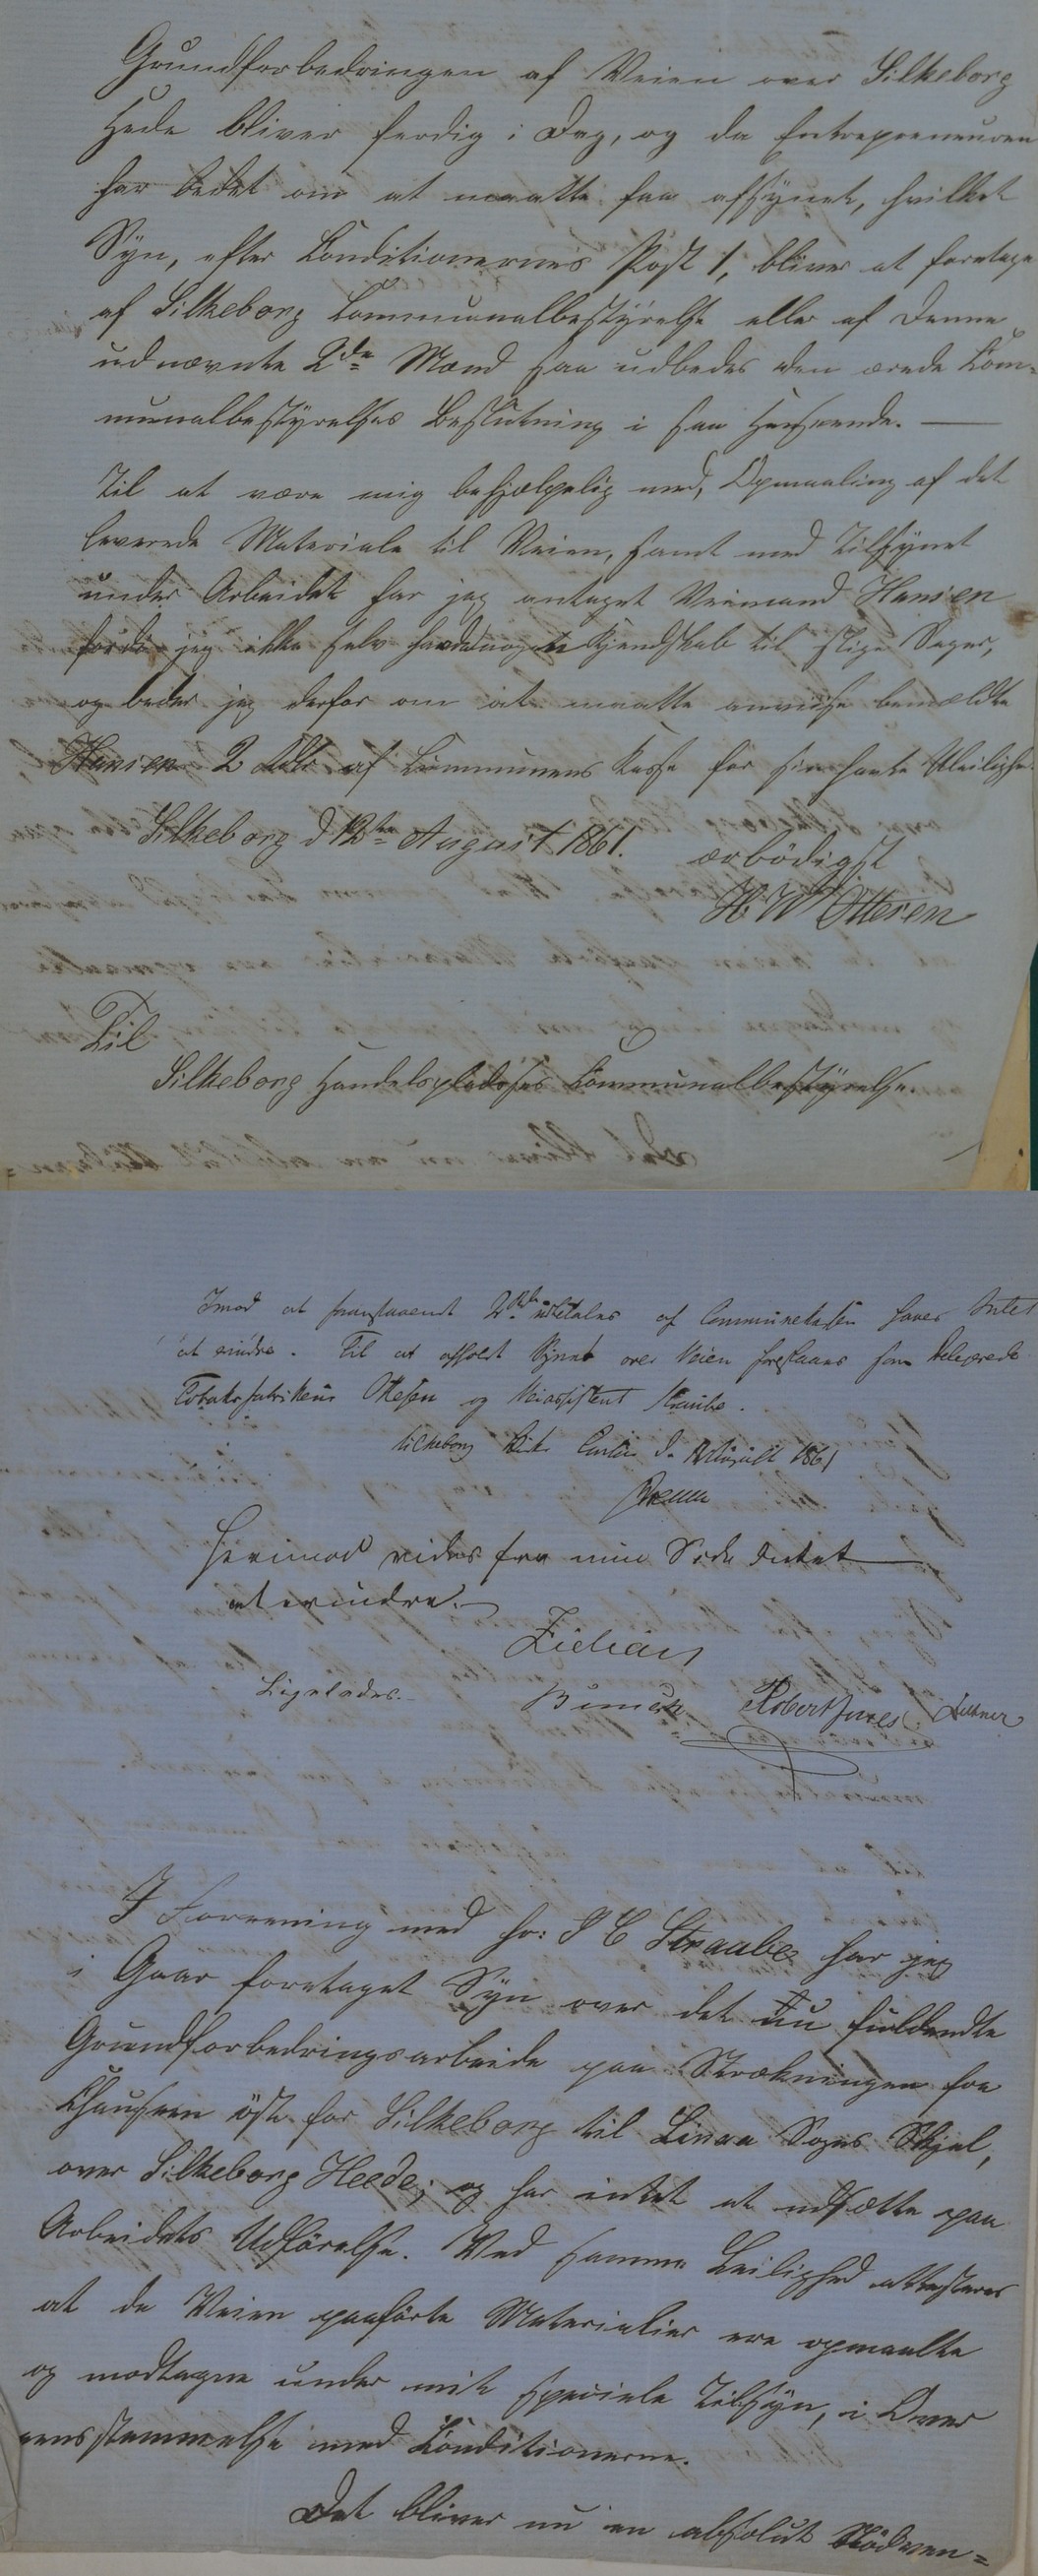 Grundforbedringen af Veien over Silkeborg
Hede bliver ferdig i Dag, og da Entrepreneuren
har bedet om at maatte faa afsynet, hvilket
Syn, efter Conditionernes Post 1, bliver at foretage
af Silkeborg Communalbestyrelse eller af Denne
udnævnte 2de Mænd saa udbedes den ærede Com=
munalbestyrelses Beslutning i saa Henseende. —
Til at være mig behjælpelig med, Opmaaling af det
leverede Materiale til Veien, samt med Tilsynet
under Arbeidet har jeg antaget Veimand Hansen
fordi jeg ikke selv havde noget Kjendskab til slige Sager,
og beder jeg derfor om at maatte anvise bemældte
Hansen 2 Rdlr af Communens Kasse for sin havte Uleilighed.
Silkeborg d 12te August 1861.
ærbödigst
H W Ottesen
Til
Silkeborg Handelsplads's Communalbestyrelse.
Imod at foranstaaende 2 Rdlr. udbetales af Communekassen haves Intet
at erindre. Til at afholde Synet over Veien foreslaaes som Delegerede
Tobaksfabrikeur Ottesen og Veiassistent Straube.
Silkeborg Birk August 1861
Drewsen
Herimod vides fra min Side Intet
at erindre.
Zielian
Ligeledes. Robert
I Forening med Hr: J C Straube har jeg
i Gaar foretaget Syn over det nu fuldendte
Grundforbedringsarbeide paa Strækningen fra
Chauseen öst for Silkeborg til Linaa Sogns Skjel,
over Silkeborg Heede; og har intet at udsætte paa
Arbeidets Udförelse. Ved samme Leilighed attesteres
at de Veien paaförte Materialier ere opmaalte
og modtagne under mit specielle Tilsyn, i Over
eensstemmelse med Conditionerne.
Det bliver nu en absolut Nödven=